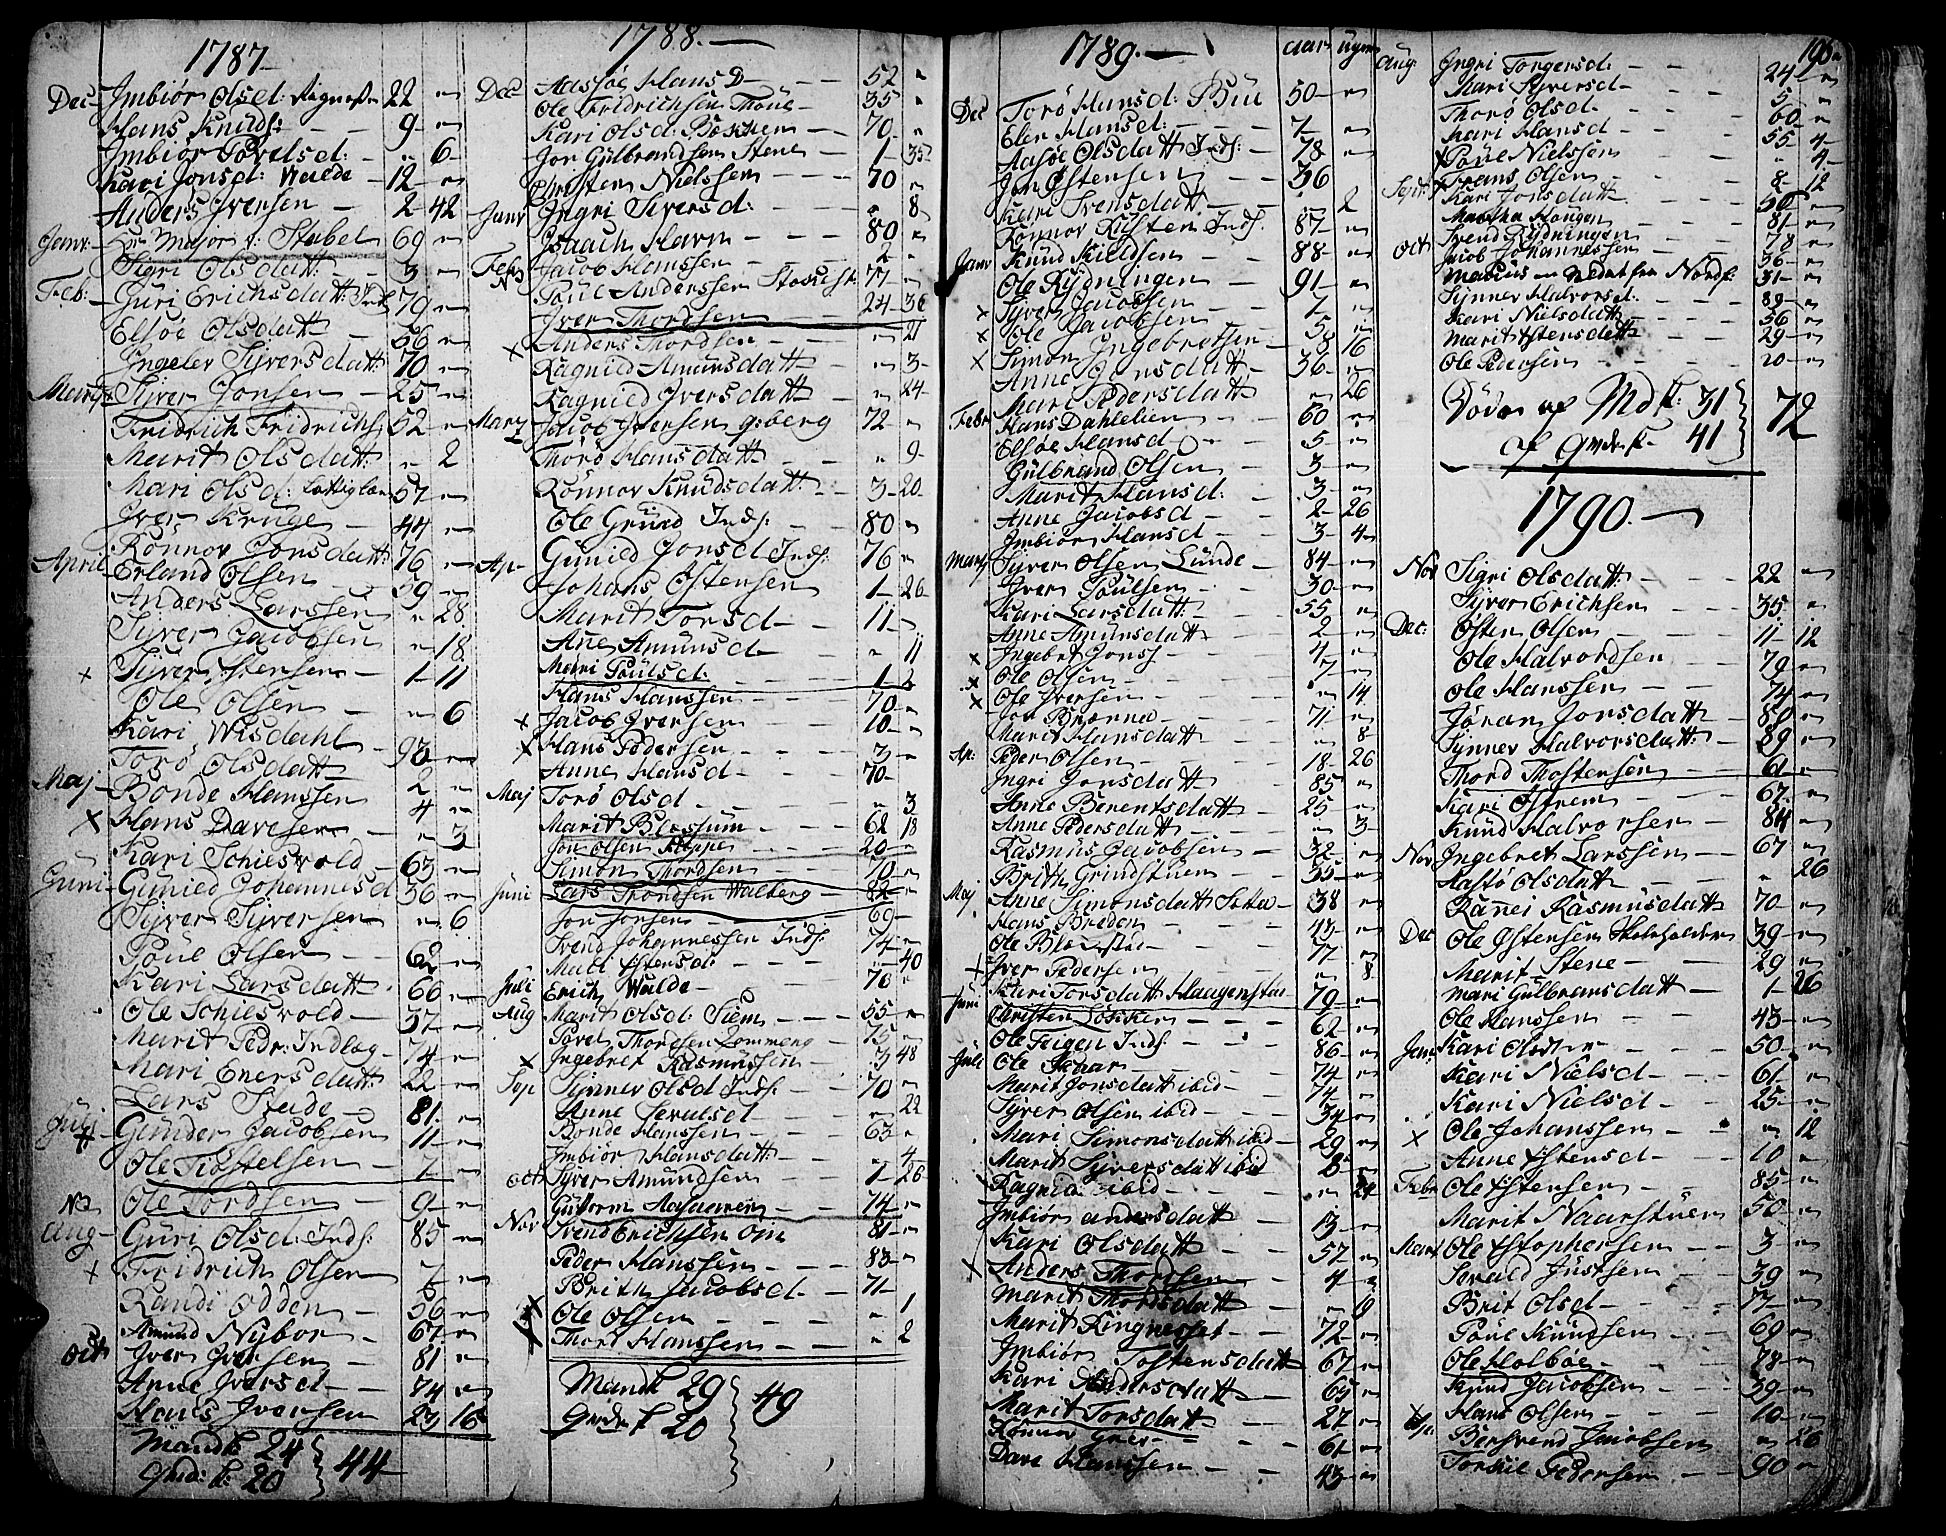 1787
Dec Imbiör Olsd: 22 "
Hans Knuds: 9 "
Imbiör Povelsd: " 6
Kari Jonsd: Walde 12 "
Anders Iversen 2 42
Janv: Major v: Stabel 69 "
Sigri Olsdatt: 3 "
Feb: Guri Erichsdatt: Inds 79 "
Elsöe Olsdatt 56 "
Ingeler Syversdatt: 70 "
Marty Syver Jonsen 25 "
Fridrich Fridrichs 52 "
Marit Olsdatt: " 2
Mari Olsd: 57 "
Iver Kruge 44 "
Rönnov Jonsdatt: 76 "
April Erland Olsen 59 "
Anders Larssen " 28
Syver Jacobsen " 18
x Syver Stensen 1 11
Ole Olsen " 6
Kari Wisdahl 93 "
Torö Olsdatt 2 "
Maj Bonde Hanssen 4 "
x Hans Davesen " 3
Kari Schiesvold 63 "
Juni Gunied Johannesd 36 "
Syver Syversen " 6
Poul Olsen 62 "
Kari Larsdatt 66 "
Ole Schiesvold 37 "
Marit Pedr: Indlæg 74 "
Mari Enersdatt: 22 "
Lars Stade 81 "
Juli Gunder Jacobsen 11 "
Ole Tostelsen 7 "
Ole Tordsen 9 "
Aug Guri Olsd: Inds: 85 "
x Fridrich Olsen
Randi Odden 56 "
Amund Nybor 67 "
Oct Iver Iversen 81 "
Anne Iversd 74 "
Hans Iversen 23 16
Mandk 24
Qvd: k: 20 } 44
1788.
Dec Aasöe Hans D 52 "
Ole Fridrichsen Thoue 35 "
Kari Olsd: Bekken 70 "
Jon Gulbrandsen Stene 1 35
Christen Nielssen 70 "
Janv Ingri Siversd: " 8
Isaach Harn 80 "
Febr Jacob Hanssen 2 "
Poul Anderssen 77 "
Iver Thordsen 24 36
x Anders Thordsen " 21
Ragnied Amunsdatt " 3
Ragnied Iversdatt " 24
Marty Jacob Iversen Qvberg 72 "
Thorö Hansdatt " 9
Rönnov Knudsdatt: 3 20
Ole Grund Inds: 80 "
Ap Gunied Jonsd Inds: 76 "
Johans Östensen 1 26
Marit Torsd 11 "
Ane Amunsd " 11
Mari Poulsd: 1 2
Hans Hanssen 70 "
x Jacob Iversen 10 "
x Hans Pedersen 3 "
Anne Hansd 70
Maj Torö Olsd " 3
Marit Blessum 62 18
Jon Olsen Kleppe 20 "
Simon Thordsen 70 "
Juni Lars Trondsen Walberg 82 "
Jon Jonsen 69
Svend Johannessen Inds: 74 "
Mari Ostensd: " 40
Juli Erich Walde 78 "
Aug Marit Olsd: Siem 55 "
Povel Thordsen 75 "
x Ingebret Rasmussen 3 48
Sep Synnev Olsd Inds: 70 "
Anne Sevalsd " 22
Bonde Hanssen 63 "
Imbiör Hansdatt: " 4
Oct Syver Amundsen 1 26
Guttorm 74 "
Nov Svend Erichsen 81 "
Peder Hanssen 83 "
Brith Jacobsd 71 "
x Ole Olsen " 1
Thord Hanssen " 2
Mandk 29
Qvdk k 20 } 49
1789. aar ugers
Dec Torö Hansd: Bue 50 "
Eler Hansd: 7 "
Aasöe Olsdatt Inds: 78 "
Jon Östensen 36
Kari Svensdatt " 2
Rönnov Kulsten Inds: 87 "
Janv Knud Kieldsen 88 "
Ole Rydningen 91 "
x Syver Jacobsen 7 "
x Ole Jacobsen 5 "
x Simon Ingebretsen 8 16
Anne Jonsdatt 36 "
Mari Pedersdatt " 26
Febr Hans Dahlelien 60 "
Elsöe Hansd 5 "
Gulbrand Olsen 3 "
Marit Hansd: 3 "
Anne Jacobsd 2 26
Imbiör Hansd 3 4
Marty Syver Olsen Lunde 84 "
Iver Poulsen 30 "
Kari Larsdatt: 55 "
Anne Amunsdatt 2 "
x Ingebret Jonss: 4 "
x Ole Olsen 7 "
x Ole Iversen " 14
Jon Brenna 71 "
Marit Hansdatt " 8
Ap: Peder Olsen 18 26
Ingri Jonsdatt 85 "
Anne Berentsdatt 25 "
Anne Pedersdatt " 3
Rasmus Jacobsen 32 "
Brith Grindstuen 35 "
Maj Anne Simonsdatt 38 "
Hans Breden 43 "
Ole Blessum 77 "
+ Iver Pedersen " 8
Juni Kari Torsdatt: Haagenstad 79 "
Christen Løkken 62 "
Ole Teigen Inds: 86 "
Juli Ole Skaar 74 "
Marit Jonsdatt ibid 74 "
Syver Olsen ibid 34 "
Mari Simonsdatt ibid 29 "
Marit Syversdatt ibid
Ragnid: ibid " 24
Imbiör andersdatt 13 "
Kari Olsdatt 57 "
Anders Thordsen 4 "
Marit Thordsdatt " 9
Marit Ringnesset 72 "
Imbiör Tostensdatt 67 "
Kari Andersdatt 65 "
Marit Torsdatt 27 "
Rönnov 61 "
Dave Hanssen 43 "
Aug: Ingri Torgersd: 24 "
Mari Syversd 5 "
Thorö Olsd 60 "
Kari Hansd 55 4
x Poul Nielssen " 4
Sept x Frans Olsen 8 12
Kari Jonsdatt 50 "
Martha Haugen 81 "
Svend Rydningen 78 "
Oct Jacob Johannessen 36 "
Matius 31 "
Synnev Halvorsd: 89 "
Kari Nielsdatt 56 "
Marit Ostensdatt 29 "
Ole Pedersen 20 "
Döde af Mdk: 31
af Qvdek 41 } 72
1790.
Nov Sigri Olsdatt 22 "
Syver Erichsen 35 "
Dec: Östen Olsen 11 12
Ole Halvordsen 79 "
Ole Hanssen 74 "
Jöran Jonsdatt 80 "
Synnev Halvorsdatt: 89 "
Thord Thostensen 61 "
Kari 67 "
Knud Halvorsen 84 "
Nov Ingebret Larssen 67 "
Aastö Olsdatt " 26
Rannei Rasmusdatt 70 "
Dec Ole Ostensen Skoleholder 39 "
Marit Stene 29 "
Mari Gulbransdatt 1 26
Ole Hanssen 43 "
Jan Kari Olsdtter 50 "
Kari Nielsd 61 "
Kari Nielsd 25 "
x Ole Johanssen " 12
Anne Ostensd 10 "
Febr Ole Ostensen 85 "
Marit Naarstuen 50 "
Mart Ole Christophersen 3 "
Sevald Justsen 39 "
Brit Olsd 77 "
Poul Knudsen 69 "
Ole Holböe 78 "
Knud Jacobsen 39 "
x Hans Olsen 10 "
Bersvend Jacobsen " 26
Torkil Pedersen 90 "